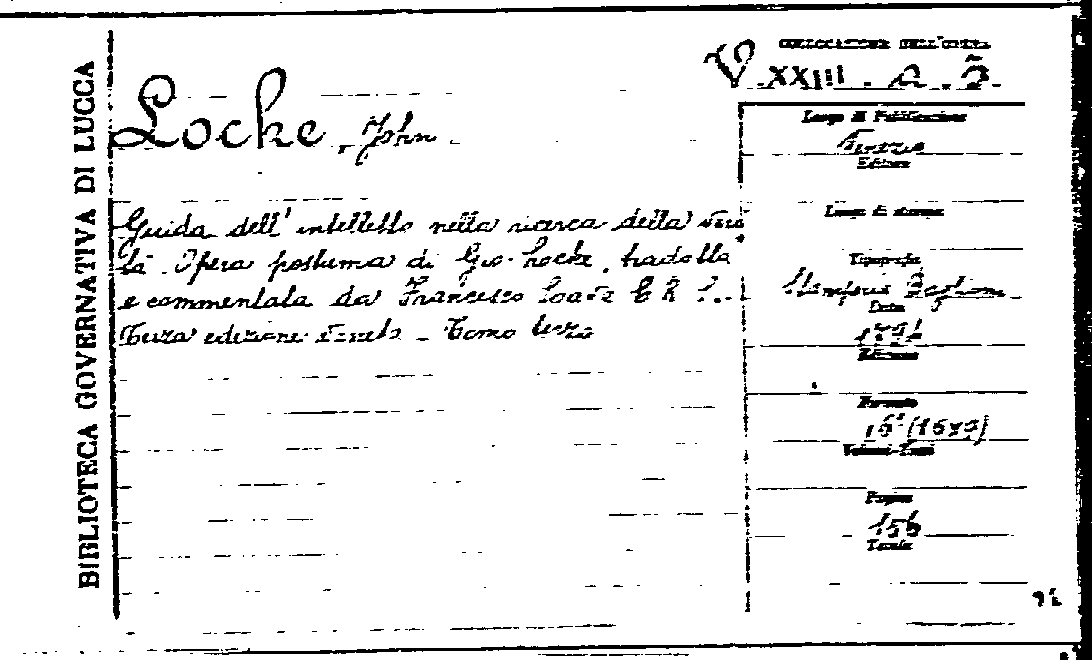 BIBLIOTECA GOVERNATIVA DI LUCCA
COLLOCAZIONE DELL'OPERA
V XXIII. a. 5.
Locke, John
Guida dell'intelletto nella ricerca della veri
tà. Opera postuma di Gio. Locke, tradotta
e commentata da Francesco Soave C R S..
Terza edizione veneta - Tomo terzo
Luogo di Pubblicazione
Venezia
Editore
Luogo di stampa
Tipografia
Stamperia Baglioni
Data
Edizione
Formato
16° (16x9)
Volumi-Tomi
Pagine
156
Tavole